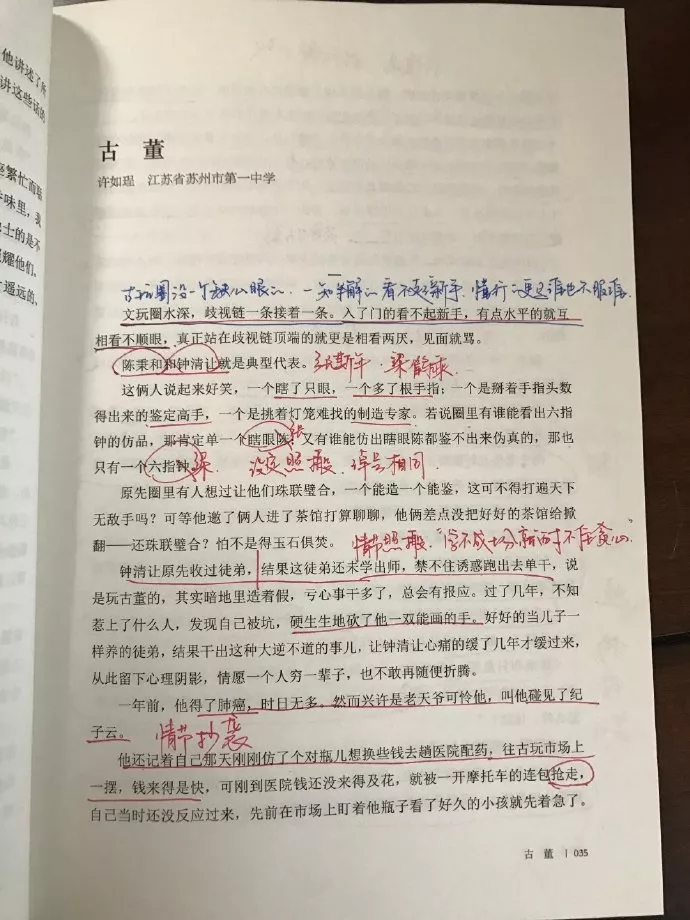 他讲述了所
讲这些话的
座繁忙而
味里,我
士的是不
耀他们,
遥远的,
古 董
许如瑆 江苏省苏州市第一中学
一
古玩圈没一个缺心眼的,一知半解的看不起新手,懂行的更是谁也不服谁.
文玩圈水深,歧视链一条接着一条。入了门的看不起新手,有点水平的就互
相看不顺眼,真正站在歧视链顶端的就更是相看两厌,见面就骂。
陈秉和和钟清让就是典型代表。
这俩人说起来好笑,一个瞎了只眼,一个多了根手指;一个是掰着手指头数
得出来的鉴定高手,一个是挑着灯笼难找的制造专家。若说圈里有谁能看出六指
钟的仿品,那肯定单一个瞎眼陈,又有谁能仿出瞎眼陈都鉴不出来伪真的,那也
只有一个六指钟。
梁 设定照搬、绰号相同
原先圈里有人想过让他们珠联璧合,一个能造一个能鉴,这可不得打遍天下
无敌手吗?可等他邀了俩人进了茶馆打算聊聊,他俩差点没把好好的茶馆给掀
翻——还珠联璧合?怕不是得玉石俱焚。
情节照搬
钟清让原先收过徒弟,结果这徒弟还未学出师,禁不住诱惑跑出去单干,说
是玩古董的,其实暗地里造着假,亏心事干多了,总会有报应。过了几年,不知
惹上了什么人,发现自己被坑,硬生生地砍了他一双能画的手。好好的当儿子一
样养的徒弟,结果干出这种大逆不道的事儿,让钟清让心痛的缓了几年才缓过来,
从此留下心理阴影,情愿一个人穷一辈子,也不敢再随便折腾。
一年前,他得了肺癌,时日无多。然而兴许是老天爷可怜他,叫他碰见了纪
子云。
情节抄袭
他还记着自己那天刚刚仿了个对瓶儿想换些钱去趟医院配药,往古玩市场上
一摆,钱来得是快,可刚到医院钱还没来得及花,就被一开摩托车的连包抢走,
自己当时还没反应过来,先前在市场上盯着他瓶子看了好久的小孩就先着急了。
古 董 | 035